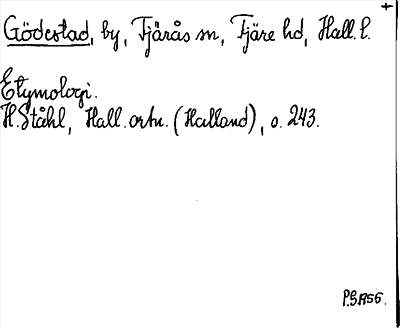 +
Gödestad, by, Fjärås sn, Fjäre hd, Hall. l.
Etymologi.
H. Ståhl, Hall. ortn. (Halland), s. 243.